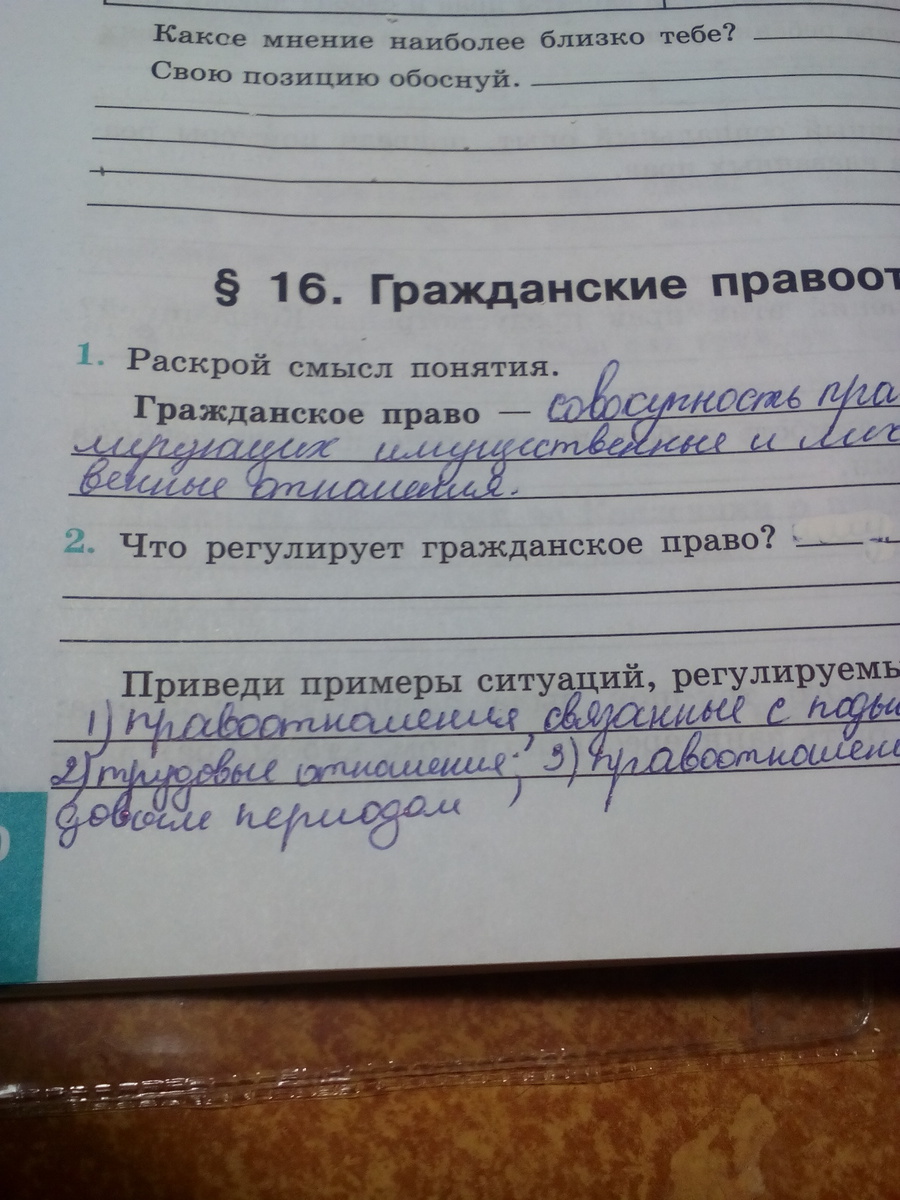 Каксе мнение наиболее близко тебе?
Свою позицию обоснуй.
§ 16. Гражданские правоот
1. Раскрой смысл понятия.
Гражданское право — совокупность пра
лирующих имущественные и
венные отношения.
2. Что регулирует гражданское право?
Приведи примеры ситуаций, регулируемы
1) правоотношения, связанные с
2) трудовые отношения; 3) правоотношен
довым периодом